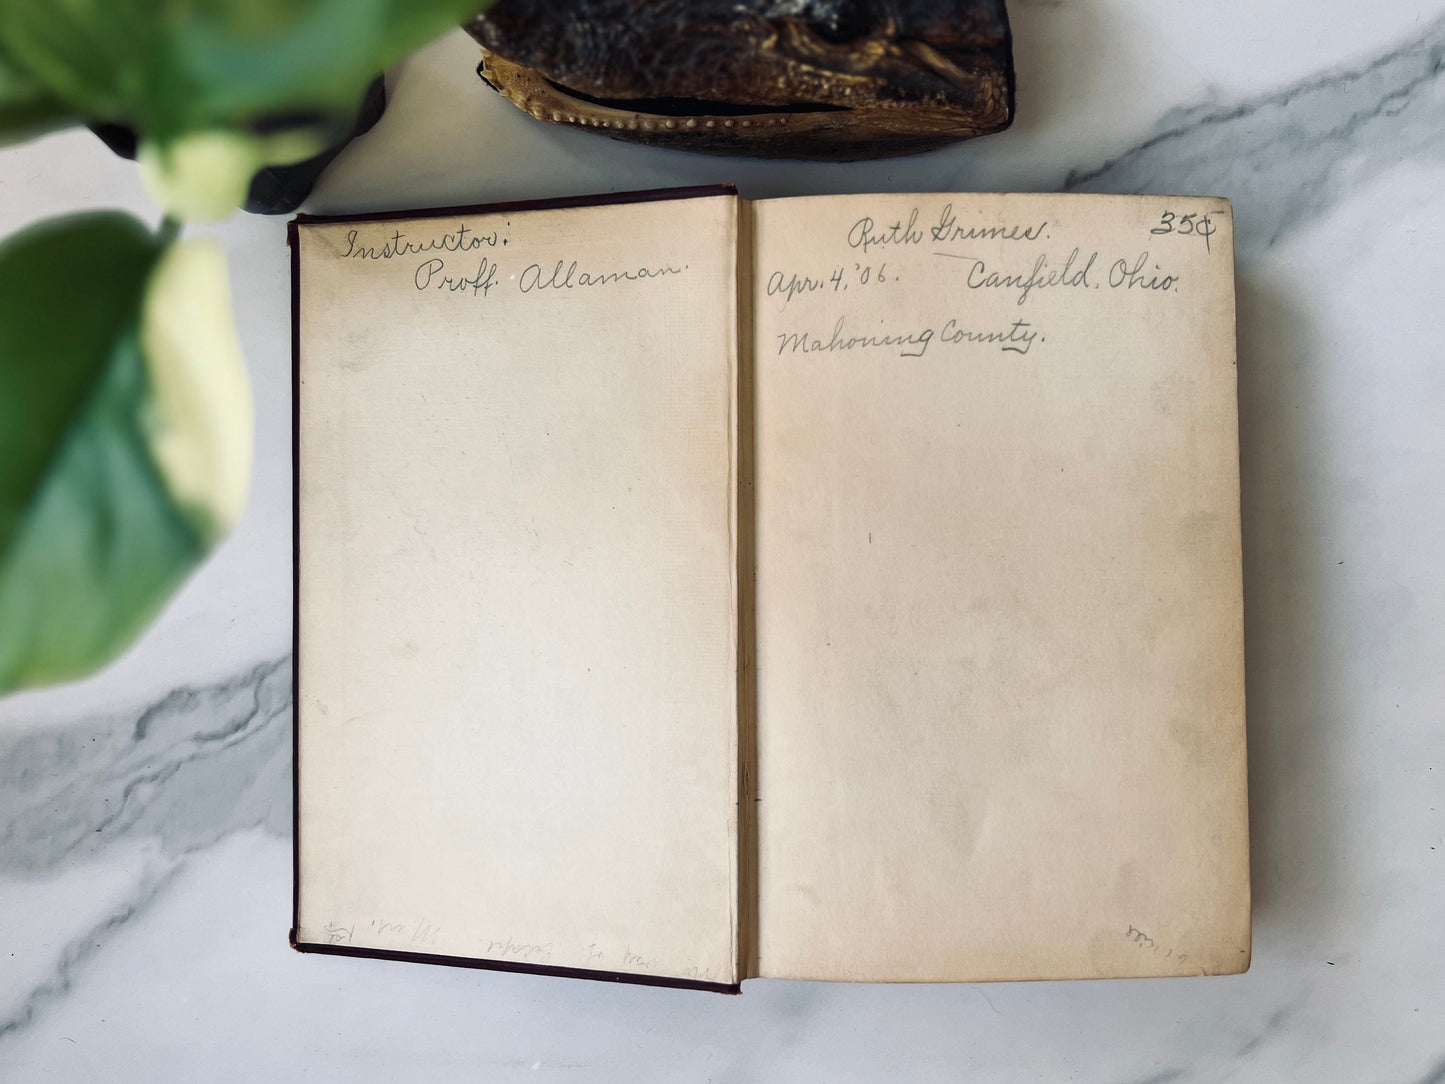 Instructor:
Proff. Allaman.
Ruth Grimes.
35¢
Apr. 4, '06. Canfield, Ohio.
Mahoning County.